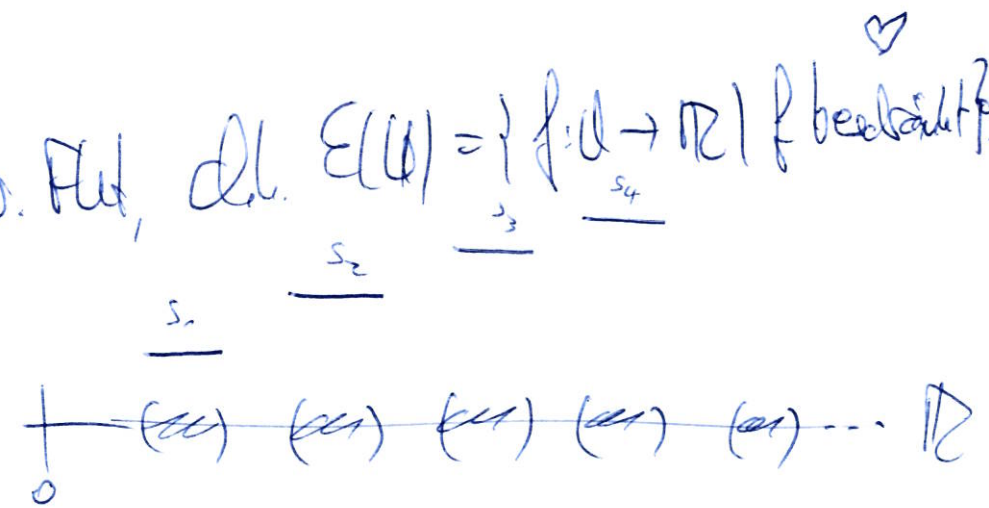 d.h. ℰ(U) = { f: U → ℝ | f beschränkt }
s₄
s₃
s₂
s₁
( ) ( ) ( ) ( ) ( ) ... ℝ
0